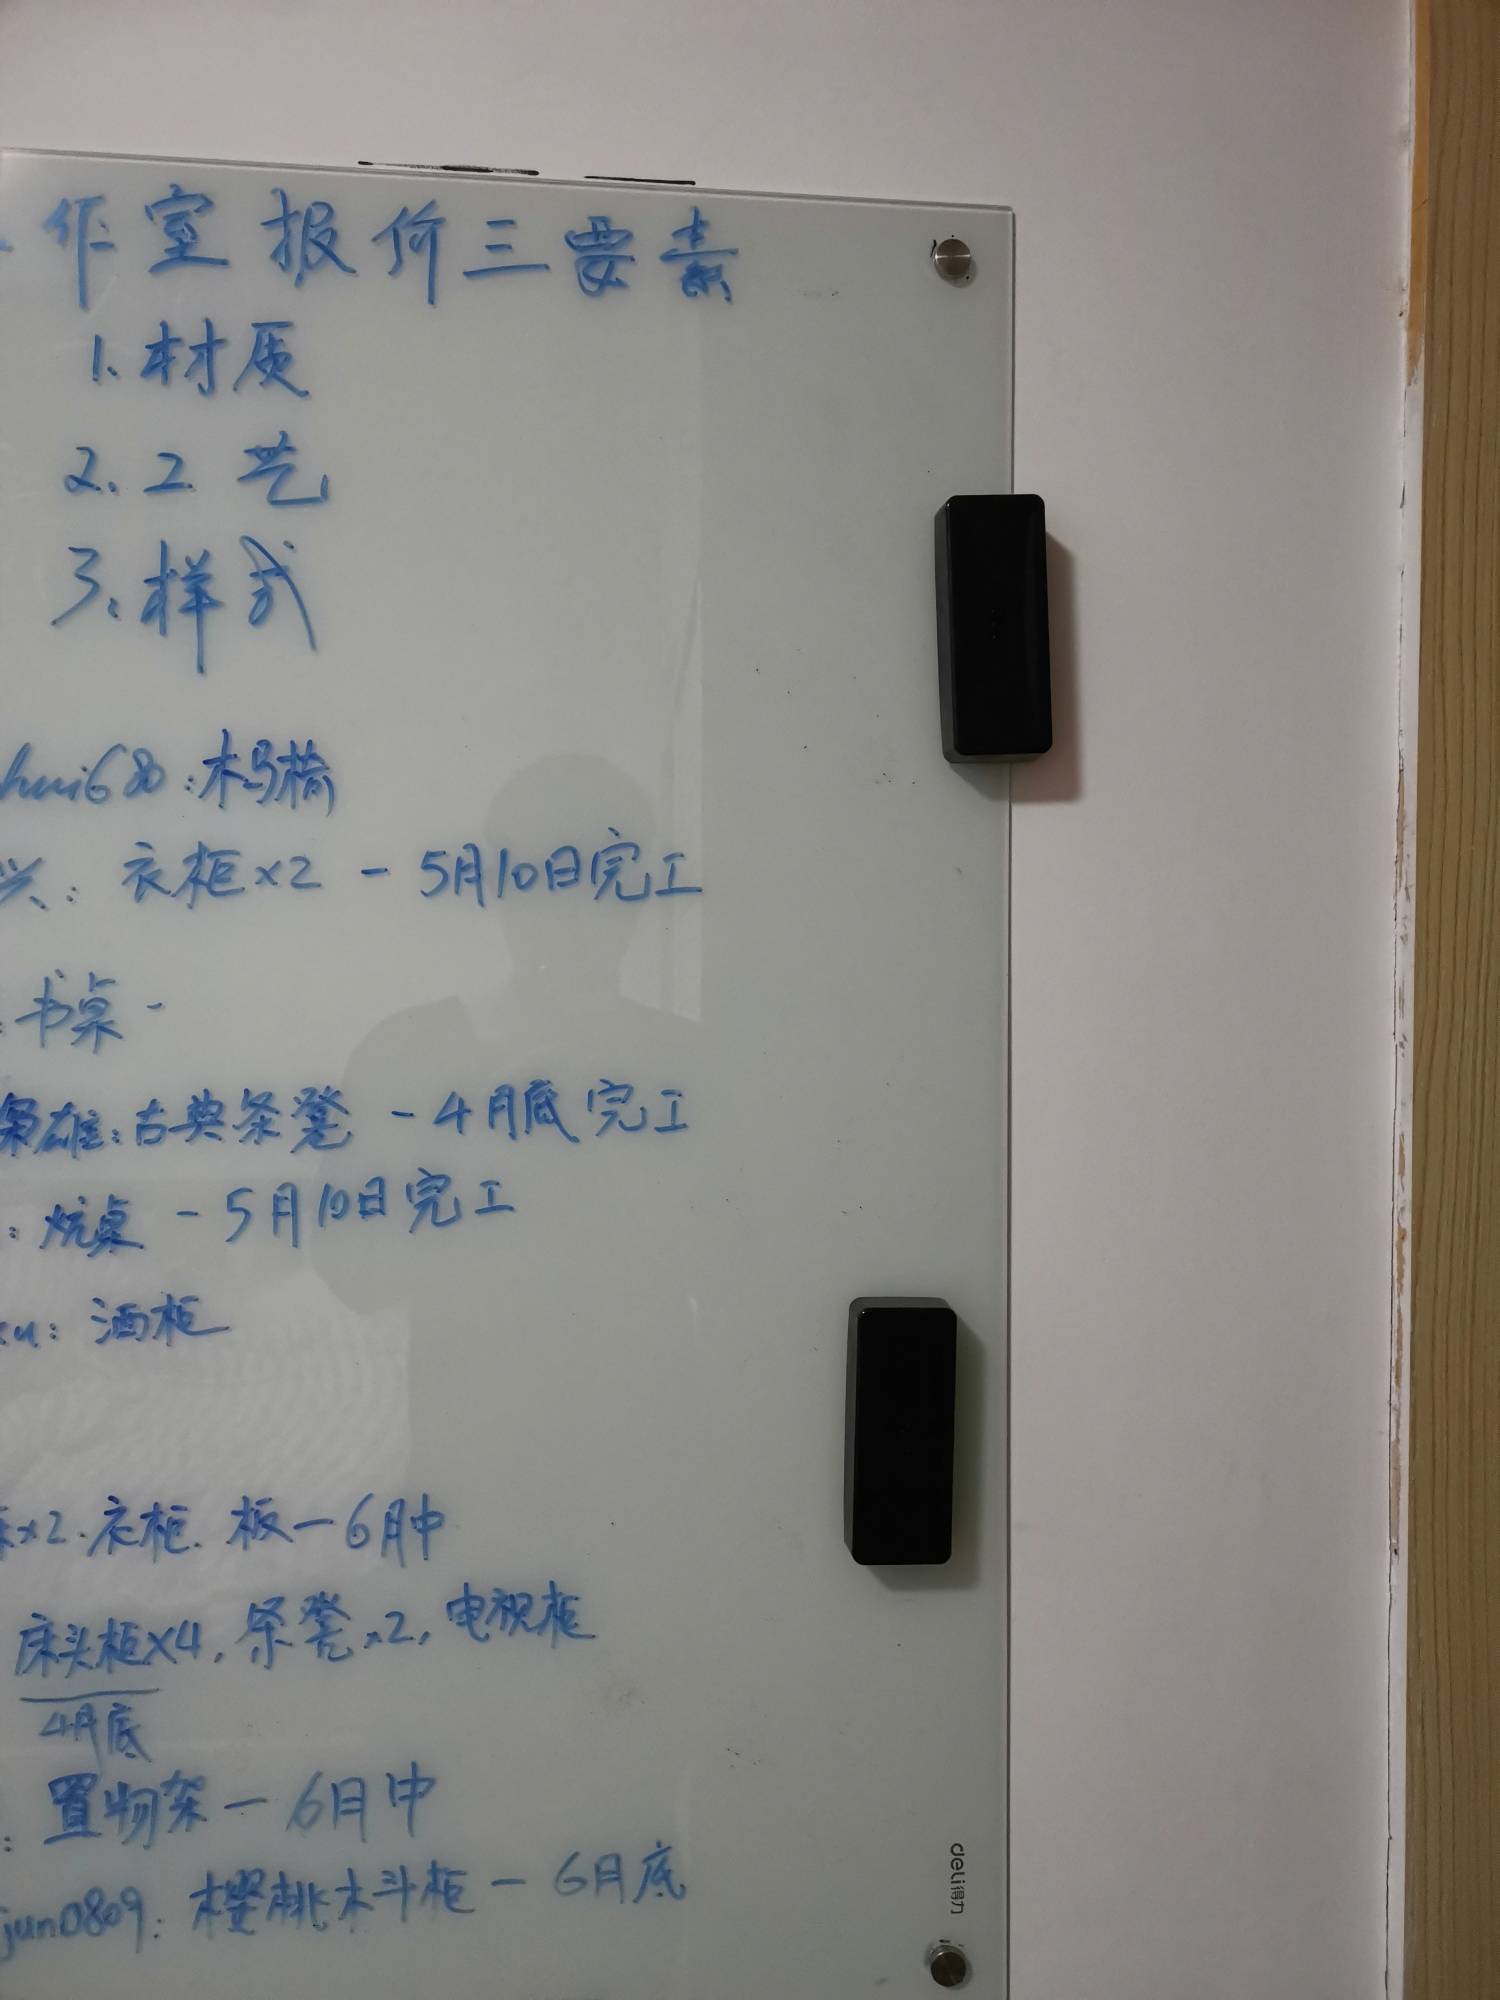 作室报价三要素
1.材质
2.工艺
3.样式
hui680:木马椅
兴: 衣柜x2 - 5月10日完工
:书桌-
枭雄:古典条凳 - 4月底完工
:炕桌 - 5月10日完工
: 酒柜
x2.衣柜.板-6月中
床头柜x4,条凳x2,电视柜
4月底
:置物架-6月中
jun0809:樱桃木斗柜-6月底
deli得力